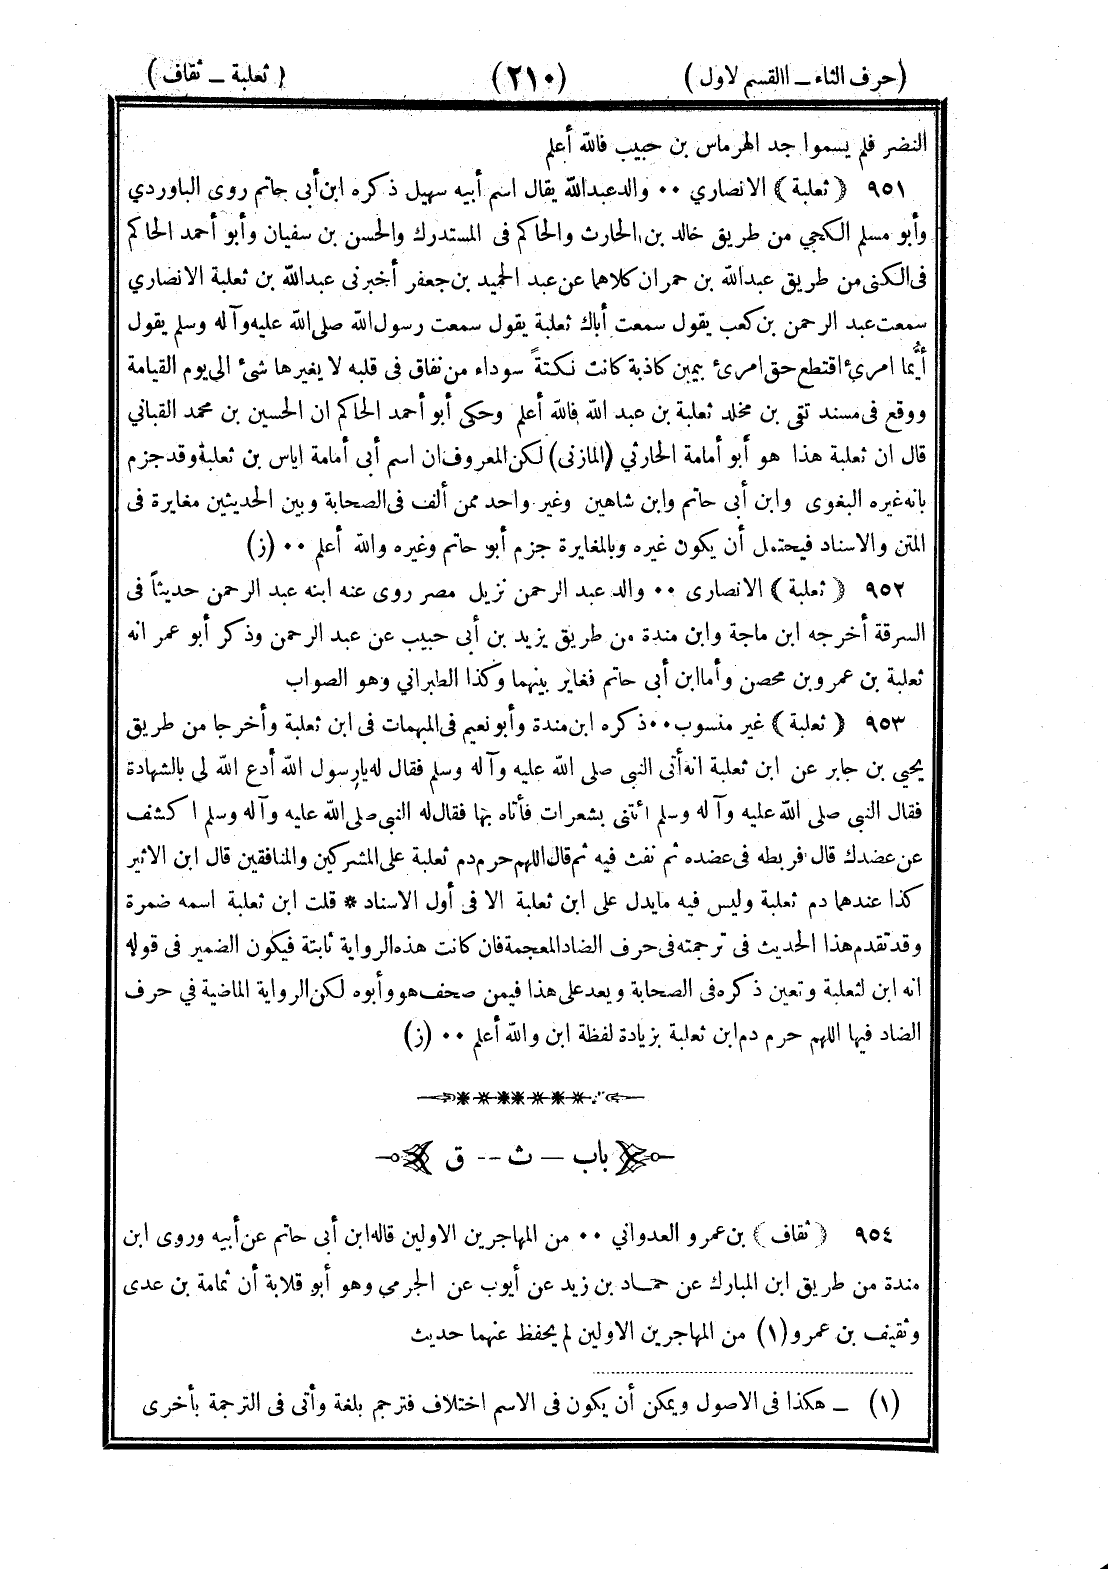 (حرف الثاء ــ االقسم لاول)
(٢١٠)
(ثعلبة ــ ثقاف)
النضر فلم يسموا جد الهرماس بن حبيب فالله أعلم
٩٥١ (ثعلبة) الانصاري ٠٠ والدعبدالله يقال اسم أبيه سهيل ذكره ابن أبى حاتم روى الباوردي
وأبو مسلم الكجي من طريق خالد بن الحارث والحاكم فى المستدرك والحسن بن سفيان وأبو أحمد الحاكم
فى الكنى من طريق عبدالله بن حمران كلاهما عن عبد الحميد بن جعفر أخبرنى عبدالله بن ثعلبة الانصاري
سمعت عبد الرحمن بن كعب يقول سمعت أباك ثعلبة يقول سمعت رسول الله صلى الله عليه وآله وسلم يقول
أيُّما امرئ اقتطع حق امرئ بيمين كاذبة كانت نكتةً سوداء من نفاق فى قلبه لا يغيرها شئ الى يوم القيامة
ووقع فى مسند تقى بن مخلد ثعلبة بن عبد الله فالله أعلم وحكى أبو أحمد الحاكم ان الحسين بن محمد القبانى
قال ان ثعلبة هذا هو أبو أمامة الحارثي (المازنى) لكن المعروف ان اسم أبى أمامة اياس بن ثعلبة وقد جزم
بانه غيره البغوى وابن أبى حاتم وابن شاهين وغير واحد ممن ألف فى الصحابة وبين الحديثين مغايرة فى
المتن والاسناد فيحتمل أن يكون غيره وبالمغايرة جزم أبو حاتم وغيره والله أعلم ٠٠ (ز)
٩٥٢ (ثعلبة) الانصارى ٠٠ والد عبد الرحمن نزيل مصر روى عنه ابنه عبد الرحمن حديثاً فى
السرقة أخرجه ابن ماجة وابن مندة من طريق يزيد بن أبى حبيب عن عبد الرحمن وذكر أبو عمر انه
ثعلبة بن عمرو بن محصن وأما ابن أبى حاتم فغاير بينهما وكذا الطبراني وهو الصواب
٩٥٣ (ثعلبة) غير منسوب ٠٠ ذكره ابن مندة وأبو نعيم فى المبهمات فى ابن ثعلبة وأخرجا من طريق
يحيى بن جابر عن ابن ثعلبة انه أتى النبى صلى الله عليه وآله وسلم فقال له يارسول الله أدع الله لى بالشهادة
فقال النبى صلى الله عليه وآله وسلم ائتنى بشعرات فأتاه بها فقال له النبى صلى الله عليه وآله وسلم اكشف
عن عضدك قال فربطه فى عضده ثم نفث فيه ثم قال اللهم حرم دم ثعلبة على المشركين والمنافقين قال ابن الاثير
كذا عندهما دم ثعلبة وليس فيه مايدل على ابن ثعلبة الا فى أول الاسناد * قلت ابن ثعلبة اسمه ضمرة
وقد تقدم هذا الحديث فى ترجمته فى حرف الضاد المعجمة فان كانت هذه الرواية ثابتة فيكون الضمير فى قوله
انه ابن لثعلبة وتعين ذكره فى الصحابة ويعد على هذا فيمن صحف هو وأبوه لكن الرواية الماضية في حرف
الضاد فيها اللهم حرم دم ابن ثعلبة بزيادة لفظة ابن والله أعلم ٠٠ (ز)
باب — ث -- ق
٩٥٤ (ثقاف) بن عمرو العدواني ٠٠ من المهاجرين الاولين قاله ابن أبى حاتم عن أبيه وروى ابن
مندة من طريق ابن المبارك عن حماد بن زيد عن أيوب عن الجرمي وهو أبو قلابة أن ثمامة بن عدى
وثقيف بن عمرو (١) من المهاجرين الاولين لم يحفظ عنهما حديث
(١) ــ هكذا فى الاصول ويمكن أن يكون فى الاسم اختلاف فترجم بلغة وأتى فى الترجمة بأخرى